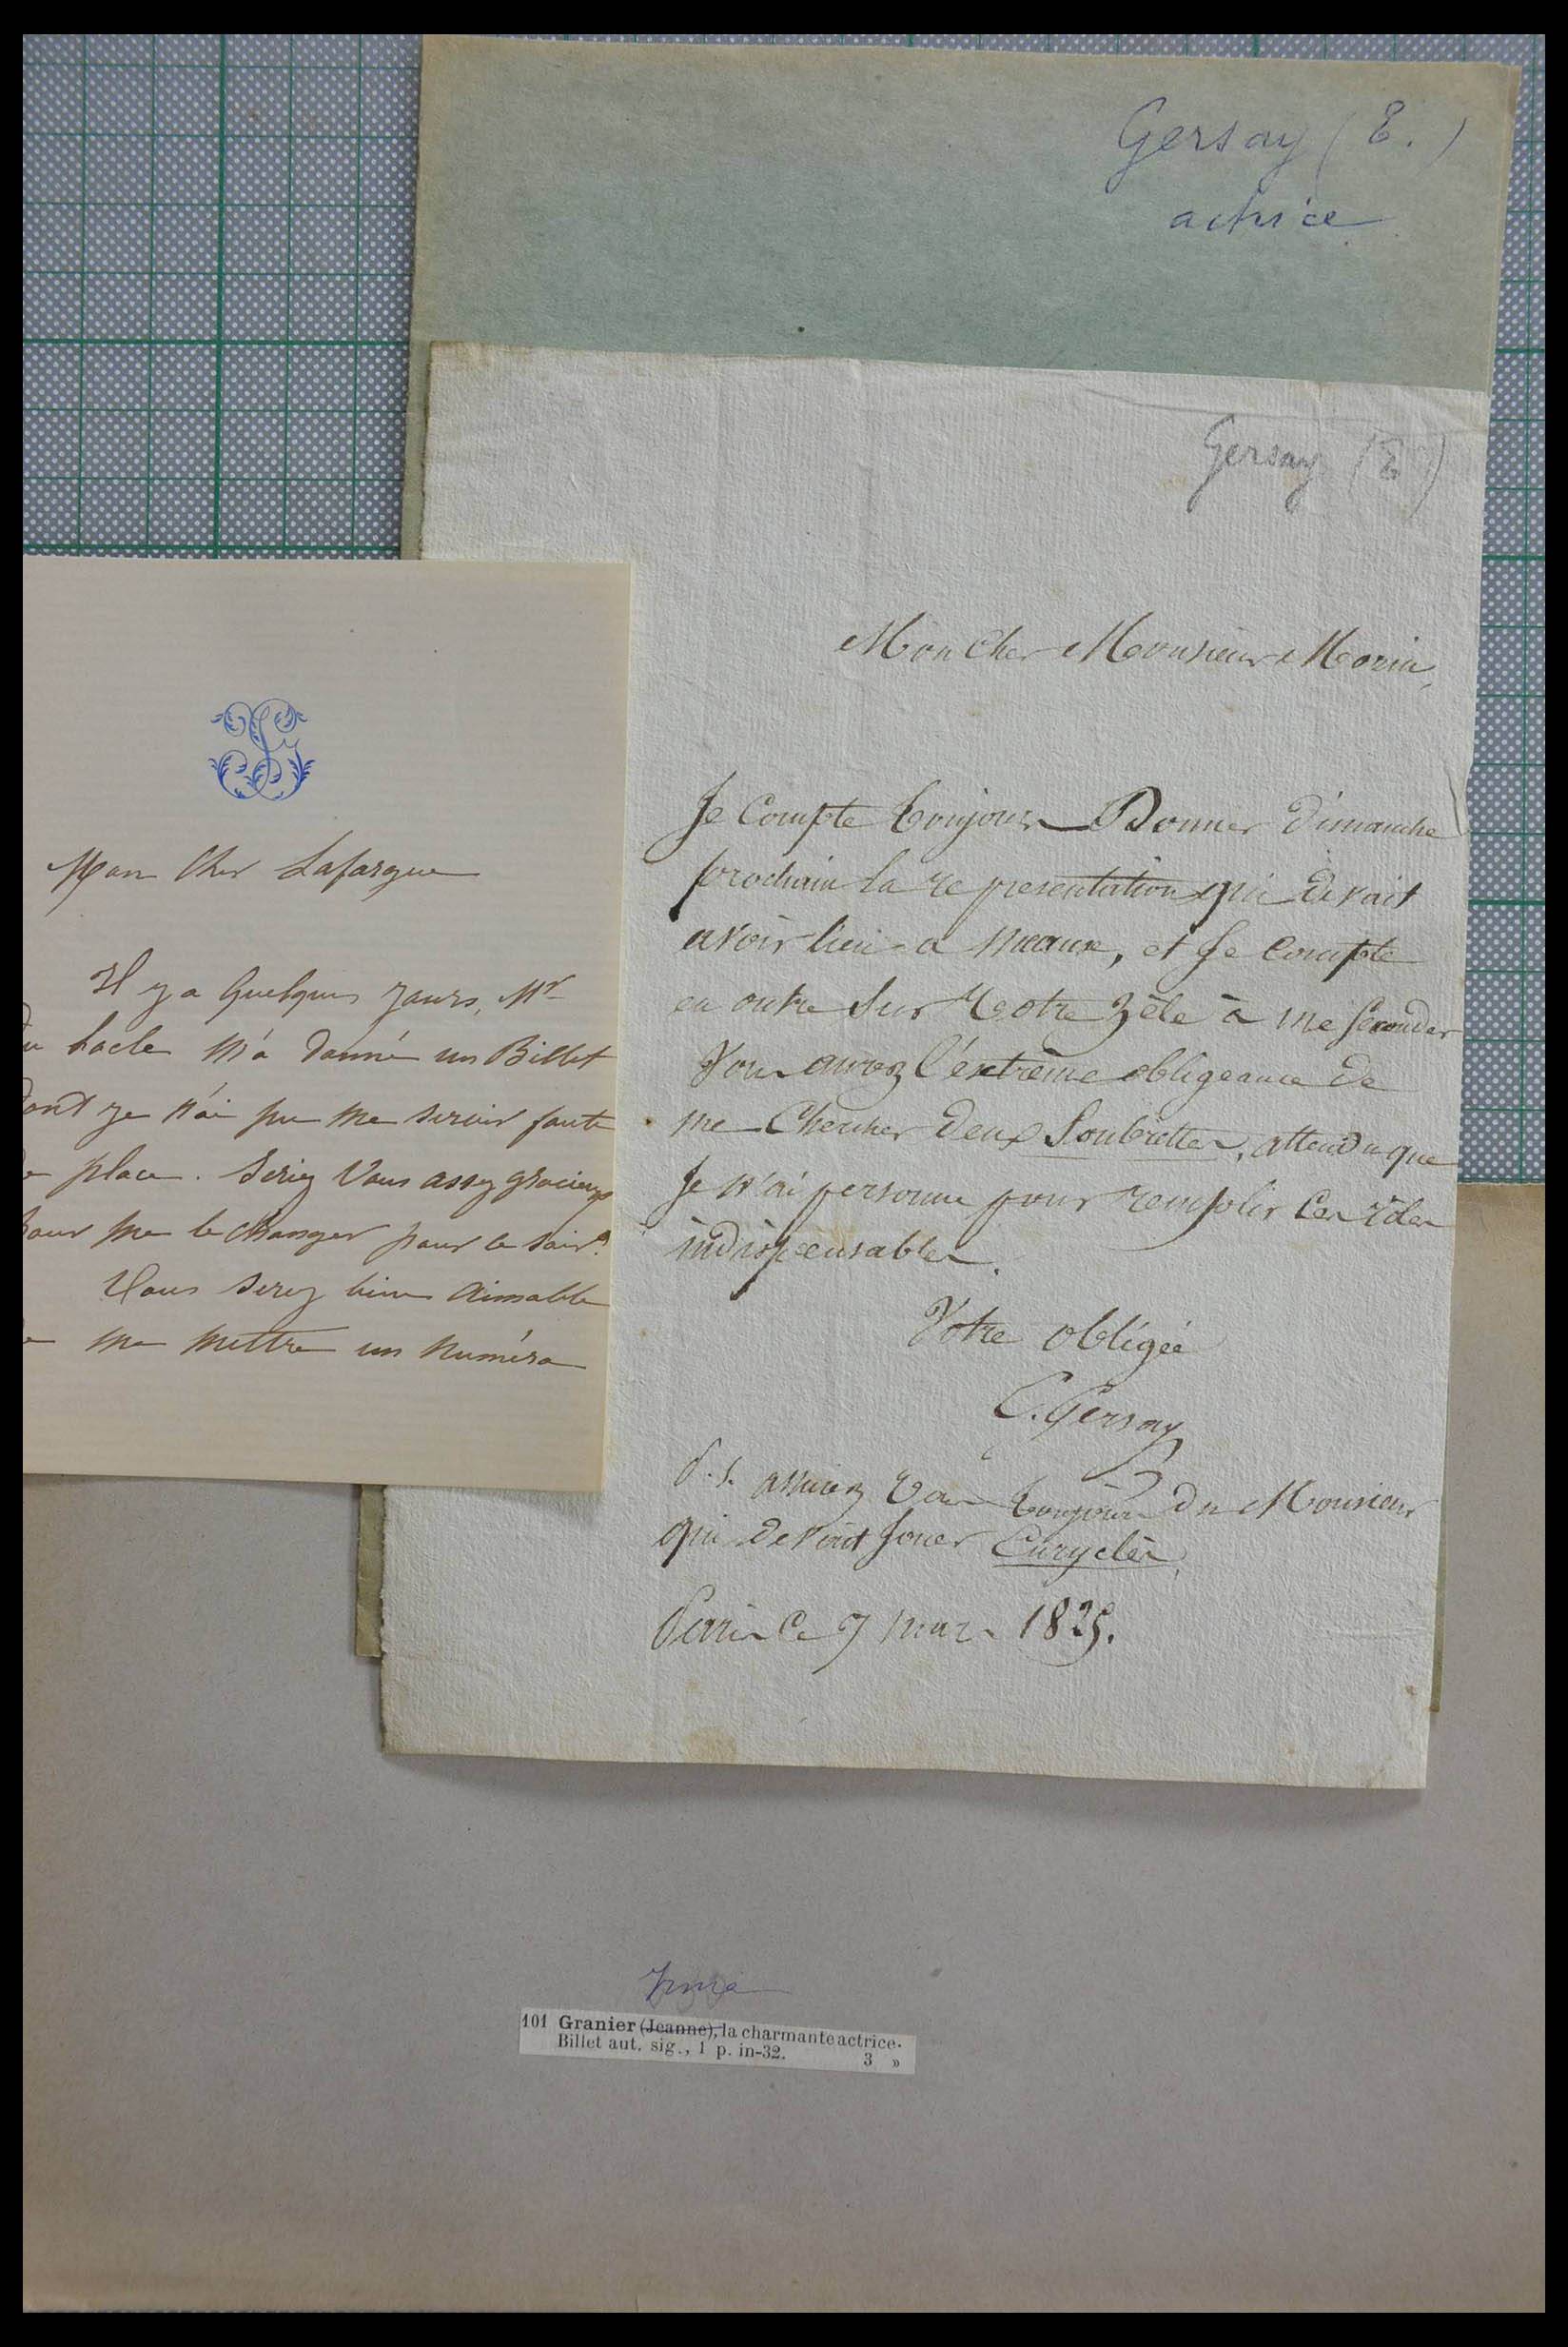 Gersay (E.)
actrice
Gersay (E)
Mon Cher Monsieur Morin,
Je Compte toujours Donner dimanche
prochain la representation qui devait
avoir lieu a meaux, et Je Compte
en outre Sur Votre zèle à me seconder
Vous aurez l'extrème obligeance de
me Chercher deux Soubrettes, attendu que
Je n'ai personne pour remplir Ces rôles
indispensables.
Votre obligée
E. Gersay
P.S. assurez Vous toujours du Monsieur
qui devait Jouer Euryclès,
Paris Ce 7 mars 1825.
Mon Cher Lafargue
Il y a Quelques jours, Mr
du Locle m'a donné un Billet
dont je n'ai pu me servir faute
de place. Seriez Vous assez gracieux
pour me le changer pour ce soir?
Vous serez bien Aimable
de me mettre un numéro
Irma
101 Granier (Jeanne), la charmante actrice.
Billet aut. sig., 1 p. in-32. 3 »